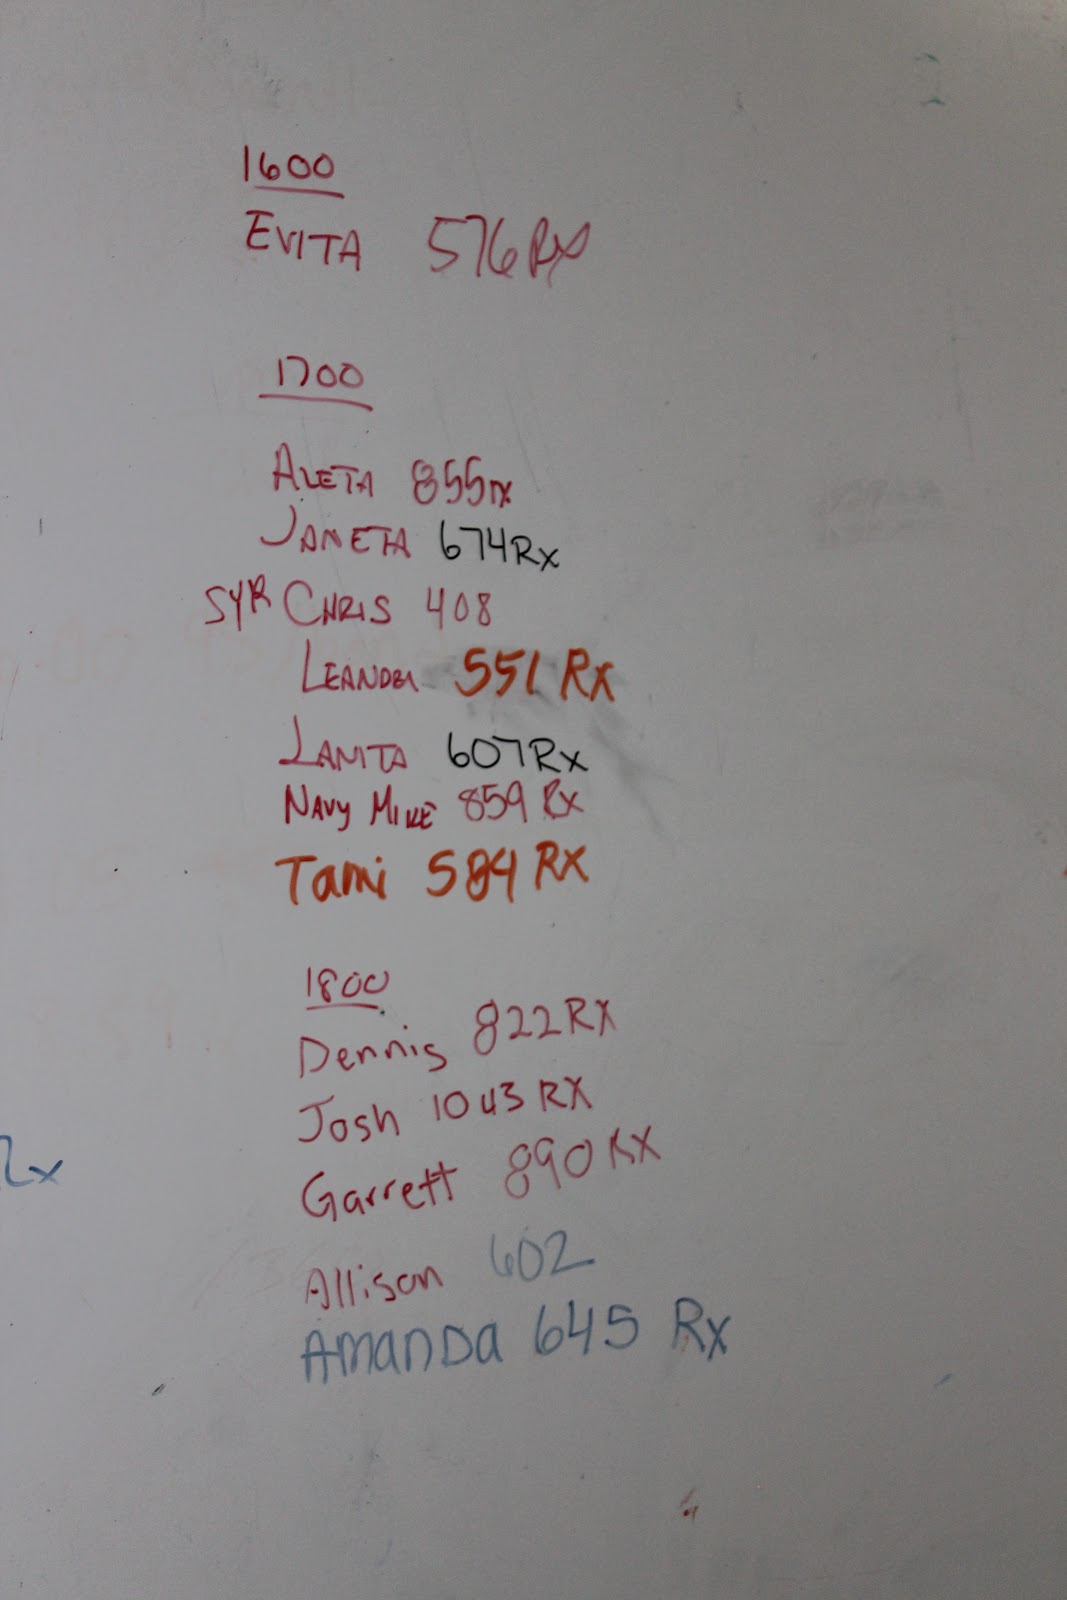 1600
EVITA 576 Rx
1700
ALETA 855 rx
JANETA 674 Rx
5YR CHRIS 408
LEANDER 551 Rx
LANITA 607 Rx
NAVY MIKE 859 Rx
Tami 584 RX
1800
Dennis 822 RX
Josh 1043 RX
Garrett 890 RX
Allison 602
AmanDa 645 Rx